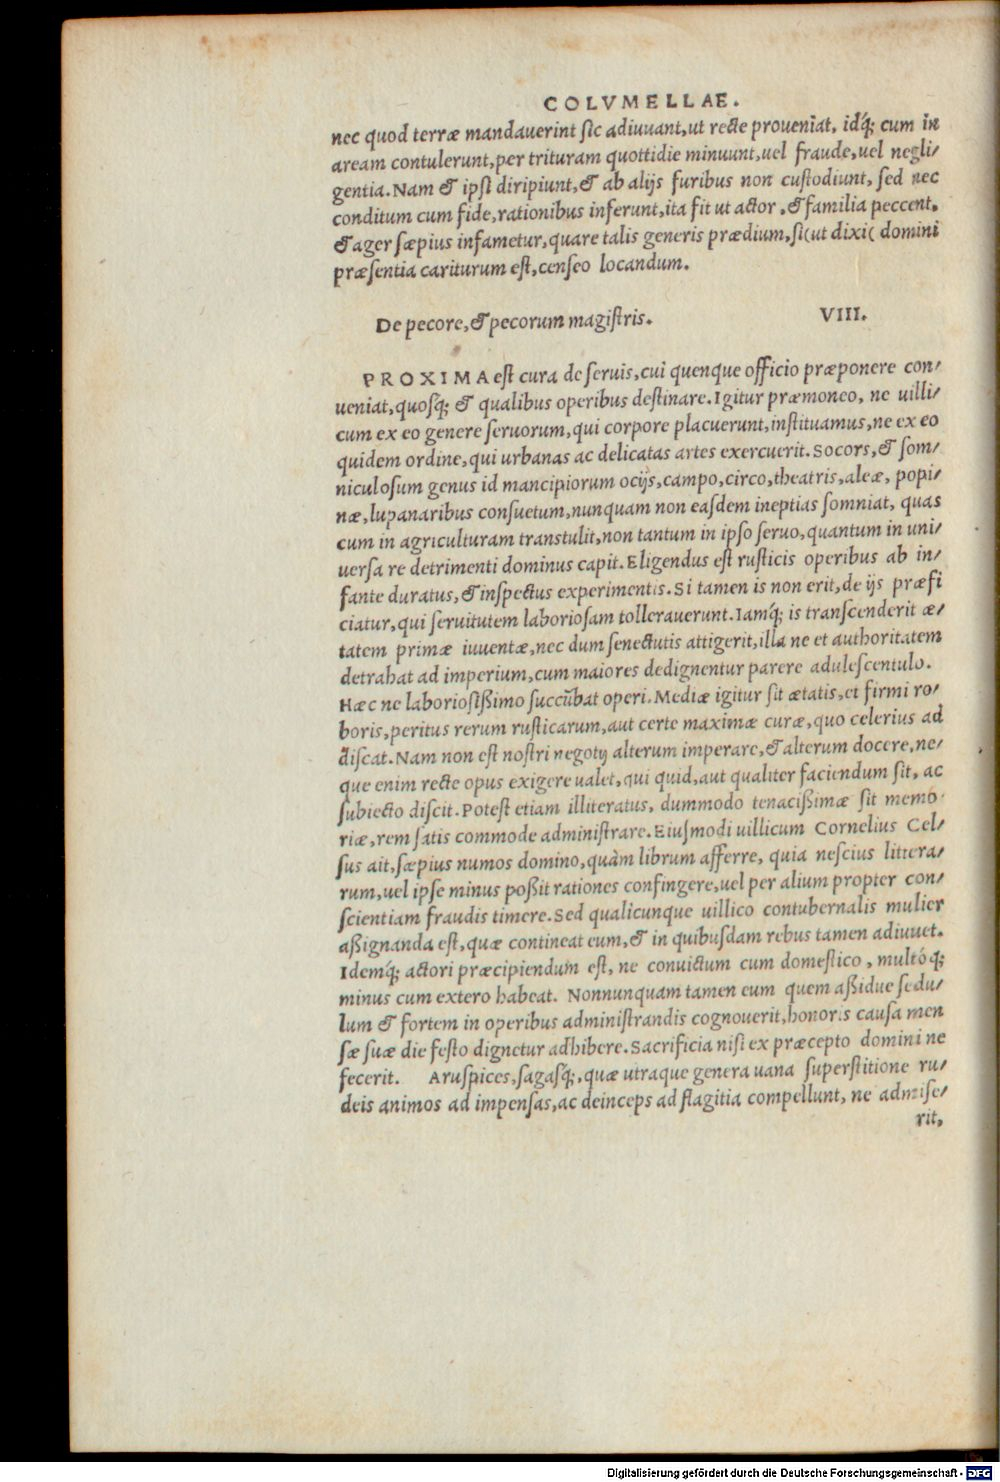 COLVMELLAE.
nec quod terræ mandauerint sic adiuuant,ut recte proueniat, idq́; cum in
aream contulerunt,per trituram quottidie minuunt,uel fraude,uel negli/
gentia. Nam & ipsi diripiunt,& ab alijs furibus non custodiunt, sed nec
conditum cum fide,rationibus inferunt,ita fit ut actor ,& familia peccent,
& ager sæpius infametur,quare talis generis prædium,si(ut dixi( domini
præsentia cariturum est,censeo locandum.
De pecore,& pecorum magistris. VIII.
PROXIMA est cura de seruis,cui quenque officio præponere con/
ueniat,quosq́; & qualibus operibus destinare. Igitur præmoneo, ne uilli/
cum ex eo genere seruorum,qui corpore placuerunt,instituamus,ne ex eo
quidem ordine,qui urbanas ac delicatas artes exercuerit. Socors,& som/
niculosum genus id mancipiorum ocijs,campo,circo,theatris,aleæ, popi/
næ,lupanaribus consuetum,nunquam non easdem ineptias somniat, quas
cum in agriculturam transtulit,non tantum in ipso seruo,quantum in uni/
uersa re detrimenti dominus capit. Eligendus est rusticis operibus ab in/
fante duratus,& inspectus experimentis. Si tamen is non erit,de ijs præfi
ciatur,qui seruitutem laboriosam tollerauerunt. Iamq́; is transcenderit æ/
tatem primæ iuuentæ,nec dum senectutis attigerit,illa ne et authoritatem
detrahat ad imperium,cum maiores dedignentur parere adulescentulo.
Hæc ne laboriosißimo succūbat operi. Mediæ igitur sit ætatis,et firmi ro/
boris,peritus rerum rusticarum,aut certe maximæ curæ,quo celerius ad
discat. Nam non est nostri negotij alterum imperare,& alterum docere,ne/
que enim recte opus exigere ualet,qui quid,aut qualiter faciendum sit, ac
subiecto discit. Potest etiam illiteratus, dummodo tenacißimæ sit memo
riæ,rem satis commode administrare. Eiusmodi uillicum Cornelius Cel/
sus ait,sæpius numos domino,quàm librum afferre, quia nescius littera/
rum,uel ipse minus poßit rationes confingere,uel per alium propter con/
scientiam fraudis timere. Sed qualicunque uillico contubernalis mulier
aßignanda est,quæ contineat eum,& in quibusdam rebus tamen adiuuet.
Idemq́; actori præcipiendum est, ne conuictum cum domestico , multóq;
minus cum extero habeat. Nonnunquam tamen eum quem aßidue sedu/
lum & fortem in operibus administrandis cognouerit,honoris causa men
sæ suæ die festo dignetur adhibere. Sacrificia nisi ex præcepto domini ne
fecerit. Aruspices,sagasq́;,quæ utraque genera uana superstitione ru/
deis animos ad impensas,ac deinceps ad flagitia compellunt, ne admise/
rit,
Digitalisierung gefördert durch die Deutsche Forschungsgemeinschaft - DFG